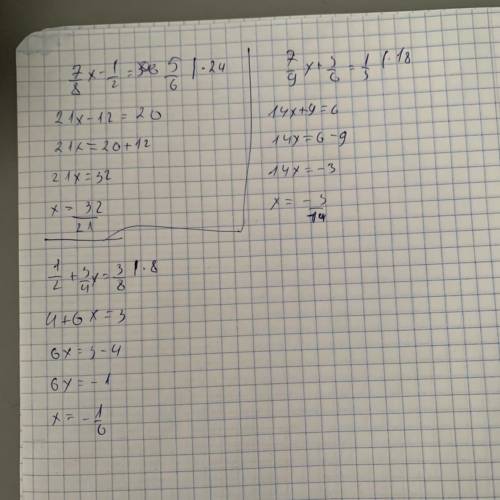 7/8 x - 1/2 = 5/6 | · 24
21x - 12 = 20
21x = 20 + 12
21x = 32
x = 32/21
7/9 x + 3/6 = 1/3 | · 18
14x + 9 = 6
14x = 6 - 9
14x = -3
x = -3/14
1/2 + 3/4 x = 3/8 | · 8
4 + 6x = 3
6x = 3 - 4
6x = -1
x = -1/6